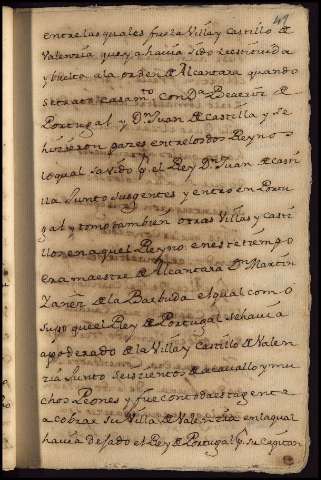 49
entre las quales fue la Villa y Castillo de
Valencia que ya havia sido restituida
y buelta a la orden de Alcantara quando
se trato casam.to con D.a Beatriz de
Portugal y D.n Juan de Castilla y se
hizieron pazes entre los dos Reynos
lo qual savido p.r el Rey D.n Juan de Casti
lla junto sus gentes y entro en Portu
gal y tomo tambien otras Villas y Casti
llos en aquel Reyno en este tiempo
era maestre de Alcantara D.n Martin
Yañez de la Barbuda el qual como
supo que el Rey de Portugal se havia
apoderado de la Villa y Castillo de Valen
zia junto seiscientos de acavallo y mu
chos Peones y fue con toda esta gente
a cobrar su Villa de Valencia en la qual
havia dejado el Rey de Portugal p.r su Capitan